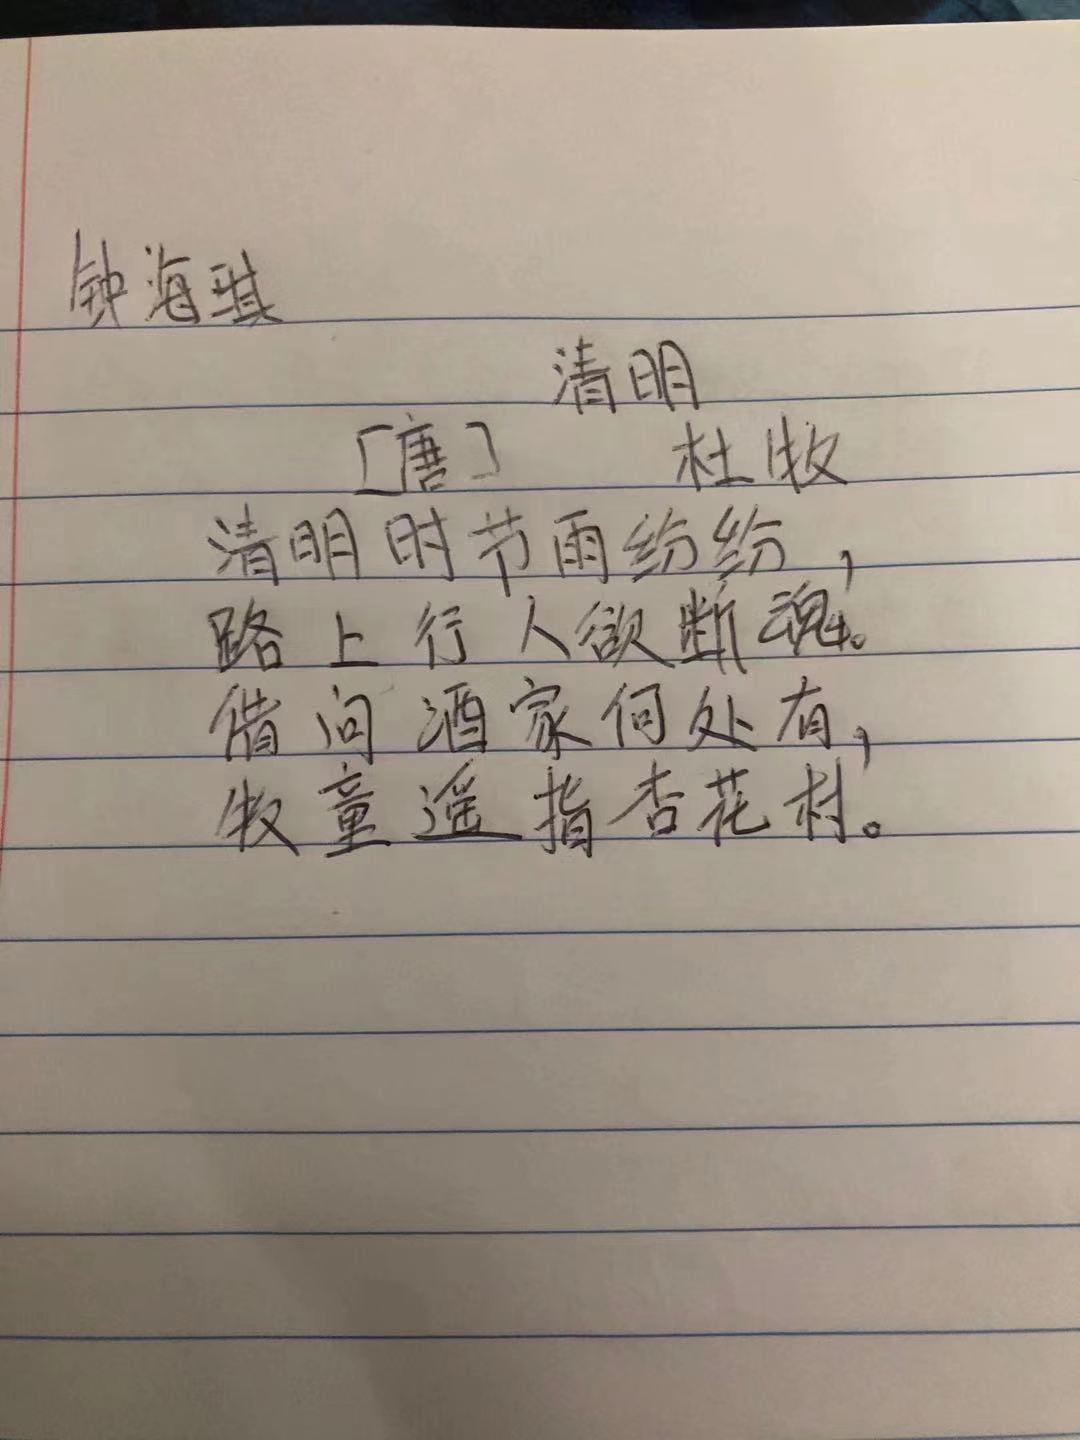 钟海琪
清明
[唐] 杜牧
清明时节雨纷纷,
路上行人欲断魂。
借问酒家何处有,
牧童遥指杏花村。